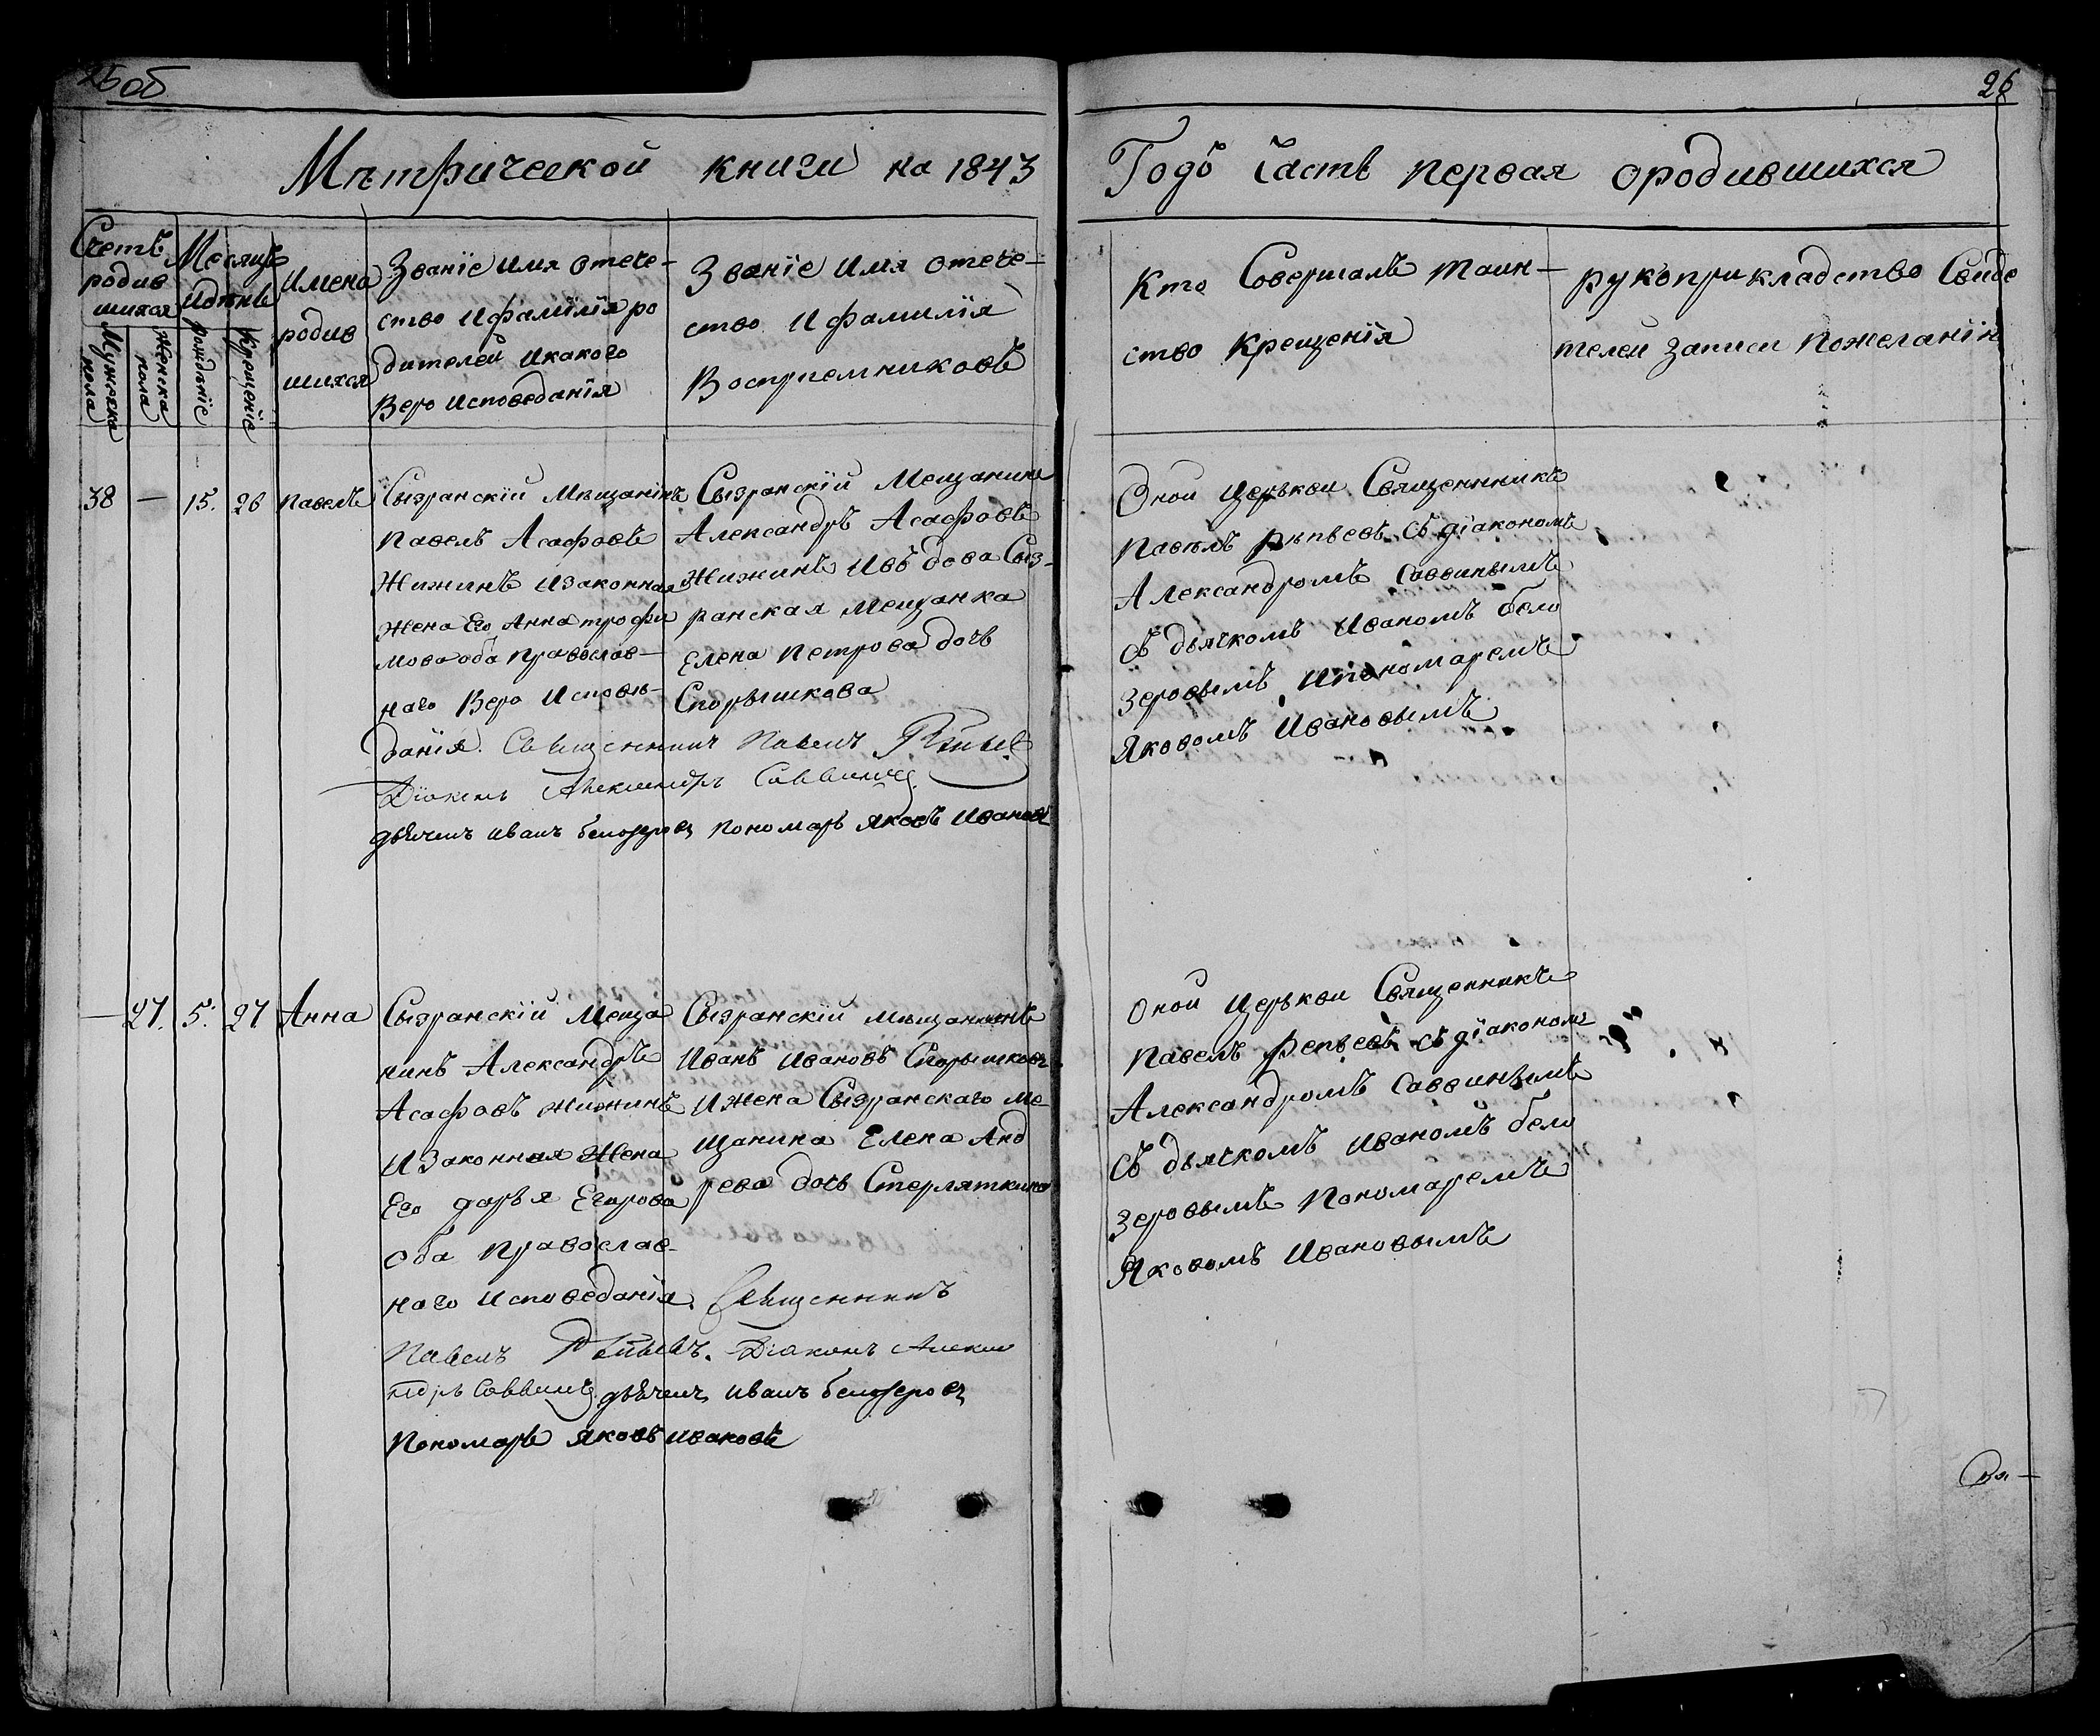 25 об
26
Мѣтрической книги на 1843
Годъ Часть первая ородившихся
Счетъ родив шихся
Мужеска пола
Женска пола
Месяцъ идень
рождѣнïе
Крещенïе
Имена родив шихся
Званïе имя отече-
ство ифамïлïя ро
дителей икакого
Веро исповеданïя
Званïе имя отече-
ство ифамилïя
Восприемниковъ
Кто Совершалъ таин-
ство крещенïя
рукоприкладство Свиде
телей записи пожеланïю
38 — 15. 26 павелъ
Сызранскïй Мѣщанïнъ
павелъ Асафовъ
Жижинъ изаконная
жена Его Анна трофи
мова оба православ-
наго Веро исповѣ-
данïя. Священникъ Павелъ
Дïаконъ Александръ Саввинъ
дьячекъ иванъ белозеровъ пономарь яковъ ивановъ
Сызранскïй Мещанинъ
Александръ Асафовъ
Жижинъ ивъ дова Сыз-
ранская мещанка
Елена петрова дочь
Спорышкова
Оной церькви Священникъ
павѣлъ рѣпьевъ съ дïакономъ
Александромъ саввинымъ
съ дьячкомъ иваномъ бело
зеровымъ ипономаремъ
яковомъ ивановымъ
— 27. 5. 27 Анна
Сызранскïй меща
нинъ Александръ
Асафовъ жижинъ
изаконная жена
Его дарья Егорова
оба православ-
наго исповеданïя. Священникъ
Павелъ Рѣпьевъ. Дïаконъ Алексан
ндръ Саввинъ дьячекъ иванъ белозеровъ
пономарь яковъ ивановъ
Сызранскïй мѣщанинъ
иванъ ивановъ Спорышковъ
ижена Сызранскаго ме-
щанина Елена Анд
рева дочь Стерляткина
Оной церькви Священникъ
павелъ репьевъ съ дïакономъ
Александромъ саввинымъ
съ дьячкомъ иваномъ бело
зеровымъ пономаремъ
яковомъ ивановымъ